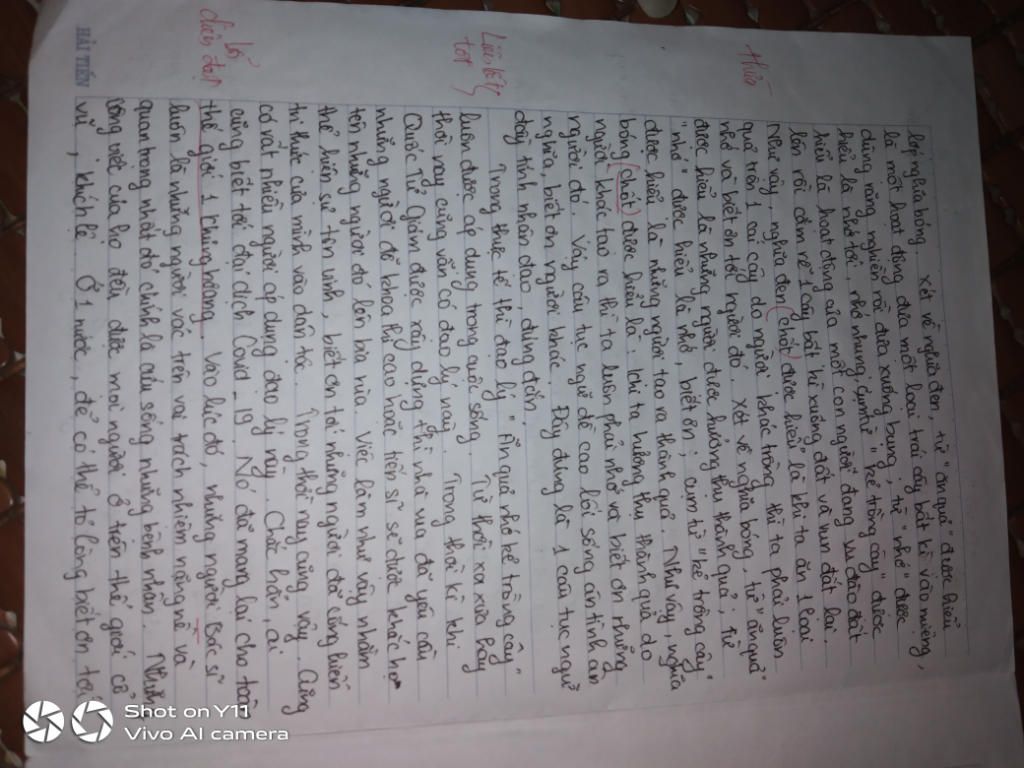 lớp nghĩa bóng. Xét về nghĩa đen, từ "ăn quả" được hiểu
là một hoạt động đưa một loại trái cây bất kì vào miệng,
dùng răng nghiền rồi đưa xuống bụng, từ "nhớ" được
hiểu là nhớ tới, nhớ nhung, cụm từ "kẻ trồng cây" được
hiểu là hoạt động của một con người đang vui đào đất
lên rồi cắm rễ 1 cây bất kì xuống đất và vun đất lại.
Như vậy, nghĩa đen (chốt) được hiểu là khi ta ăn 1 loại
quả trên 1 cái cây do người khác trồng thì ta phải luôn
nhớ và biết ơn tới người đó. Xét về nghĩa bóng, từ "ăn quả"
được hiểu là những người được hưởng thụ thành quả, từ
"nhớ" được hiểu là nhớ, biết ơn; cụm từ "kẻ trồng cây"
được hiểu là những người tạo ra thành quả. Như vậy, nghĩa
bóng (chốt) được hiểu là: khi ta hưởng thụ thành quả do
người khác tạo ra thì ta luôn phải nhớ và biết ơn những
người đó. Vậy câu tục ngữ đề cao lối sống ân tình ân
nghĩa, biết ơn người khác. Đây đúng là 1 câu tục ngữ
đầy tính nhân đạo, đúng đắn.
Trong thực tế thì đạo lý "Ăn quả nhớ kẻ trồng cây"
luôn được áp dụng trong cuộc sống. Từ thời xa xưa hay
thời nay cũng vẫn có đạo lý này. Trong thời kì khi
Quốc Tử Giám được xây dựng thì nhà vua đã yêu cầu
những người đỗ khoa thi cao hoặc tiến sĩ sẽ được khắc họ
tên những người đó lên bia rùa. Việc làm như vậy nhằm
thể hiện sự tôn vinh, biết ơn tới những người đã cống hiến
tri thức của mình vào dân tộc. Trong thời nay cũng vậy. Cũng
có rất nhiều người áp dụng đạo lý này. Chắc hẳn, ai
cũng biết tới đại dịch Covid - 19. Nó đã mang lại cho toàn
thế giới 1 khủng hoảng. Vào lúc đó, những người Bác sĩ
luôn là những người vác trên vai trách nhiệm nặng nề và
quan trọng nhất đó chính là cứu sống những bệnh nhân. Những
công việc của họ đều được mọi người ở trên thế giới cổ
vũ, khích lệ. Ở 1 nước, để có thể tỏ lòng biết ơn tới
thừa
tốt
lỗi
diễn đạt
HẢI TIẾN
Shot on Y11
Vivo AI camera